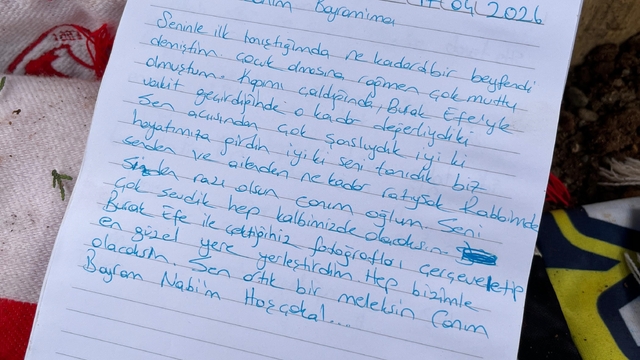 Bayramıma 17/04/2026
Seninle ilk tanıştığımda ne kadarda bir beyfendi
demiştim. Çocuk olmasına rağmen çok mutlu
olmuştum. Kapımı çaldığında, Burak Efe'yle
vakit geçirdiğinde o kadar değerliydiki
Sen açısından çok şanslıydık iyi ki
hayatımıza girdin iyiki seni tanıdık biz
senden ve ailenden ne kadar razıysak Rabbimde
Sizden razı olsun canım oğlum. Seni
Çok sevdik hep kalbimizde olacaksın.
Burak Efe ile çektiğiniz fotoğrafları çerçeveletip
en güzel yere yerleştirdim Hep bizimle
olacaksın. Sen artık bir meleksin Canım
Bayram Nabi'm Hoşçakal....